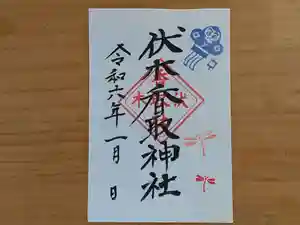 伏木香取神社
令和六年一月 日